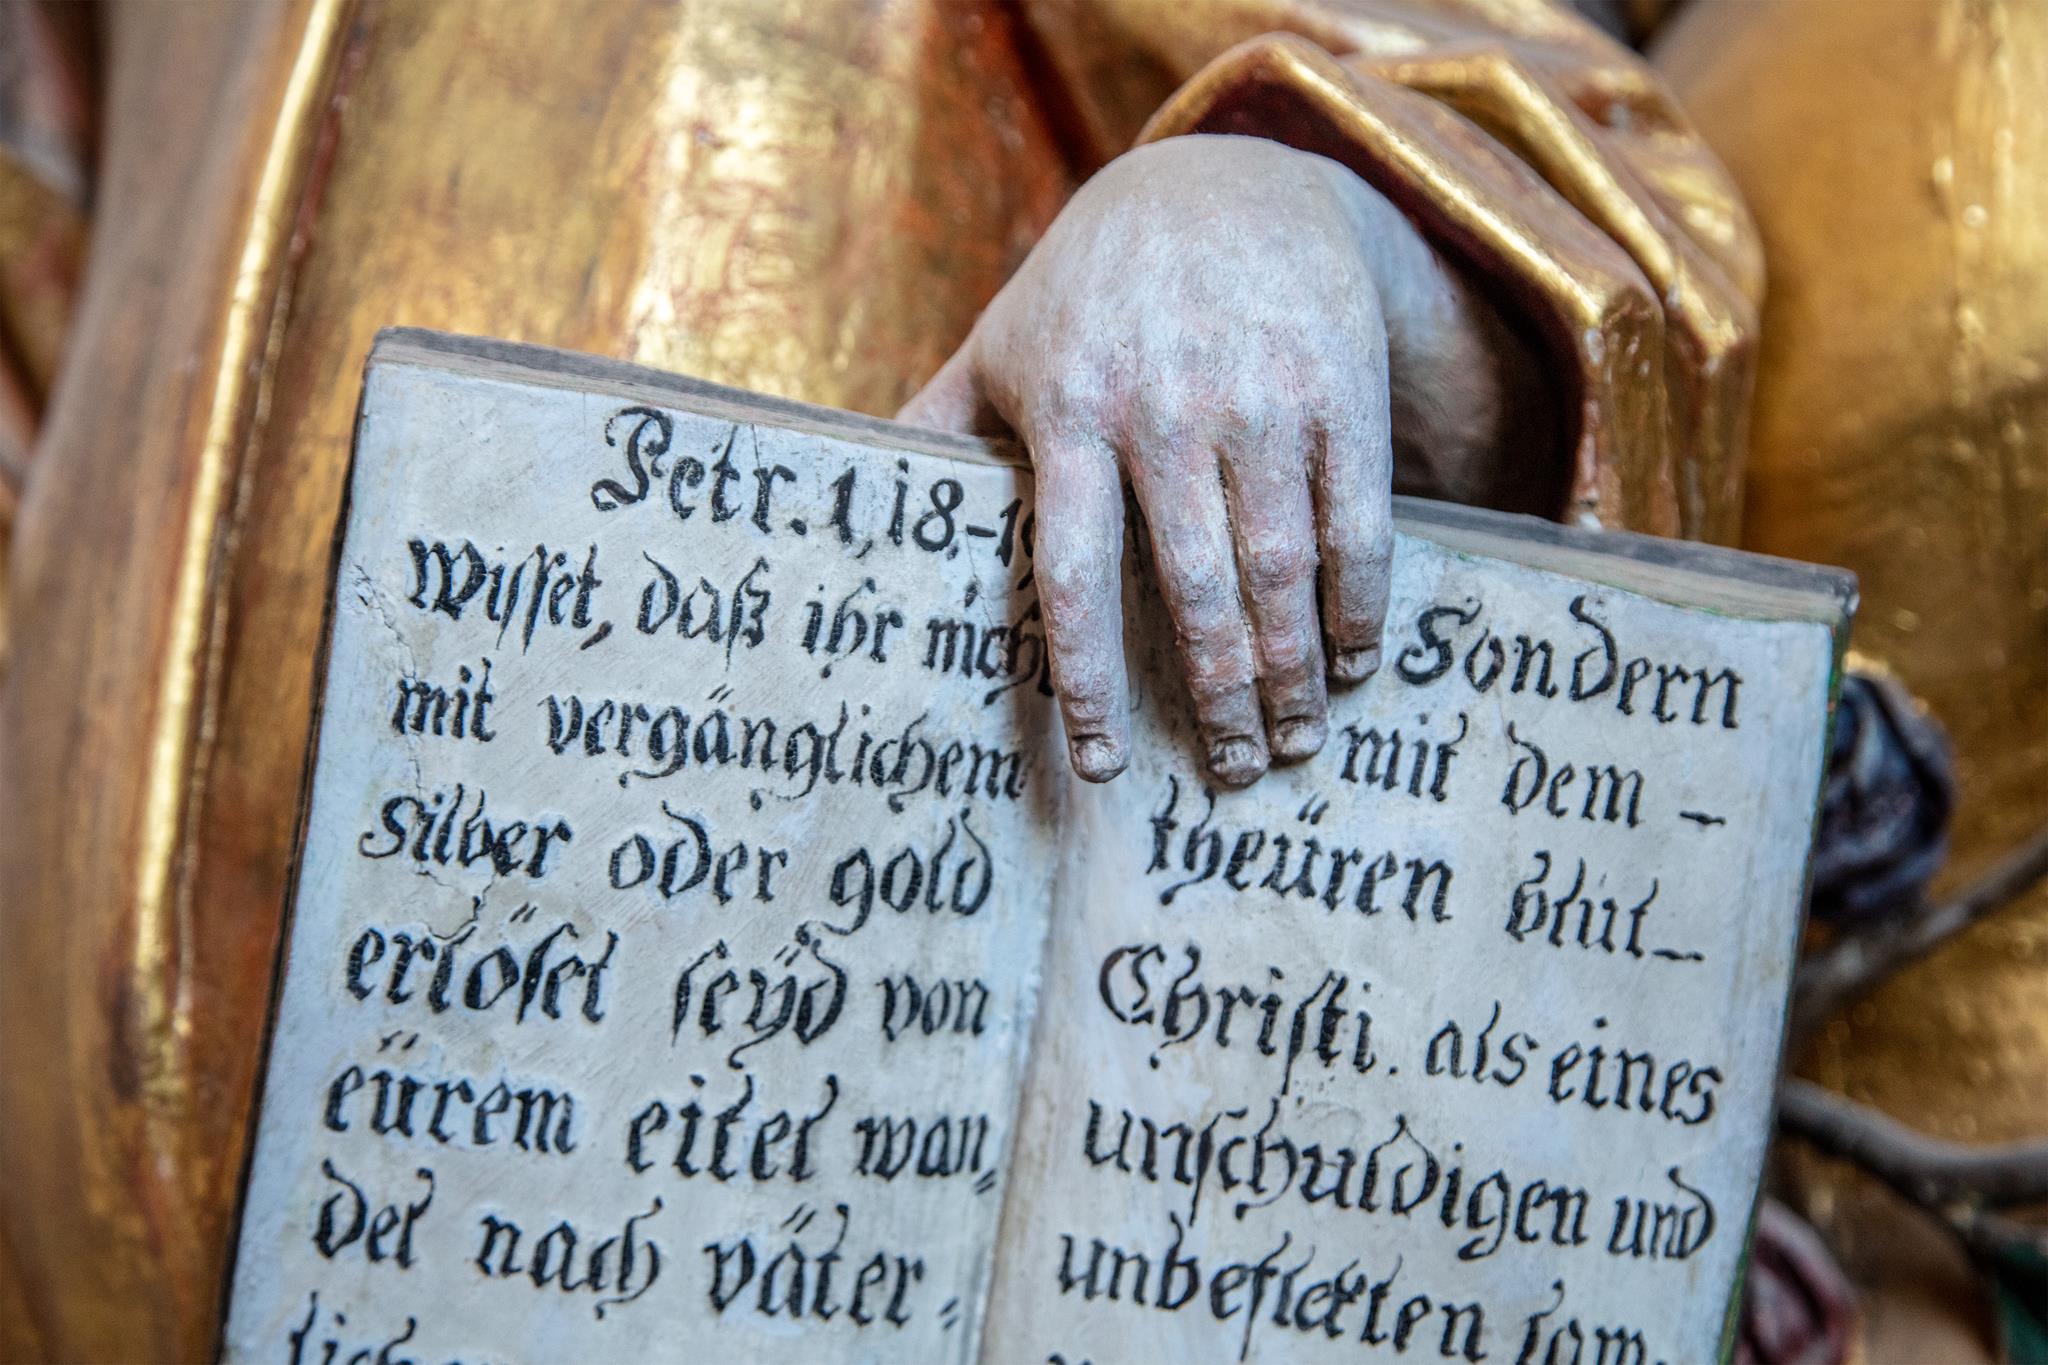 Petr. 1, 18.-19
Wisset, daß ihr nicht
mit vergänglichem
silber oder gold
erlöset seÿd von
eürem eitel wan⸗
del nach väter⸗
Sondern
mit dem –
theüren blut–
Christi. als eines
unschuldigen und
unbeflekten lam⸗